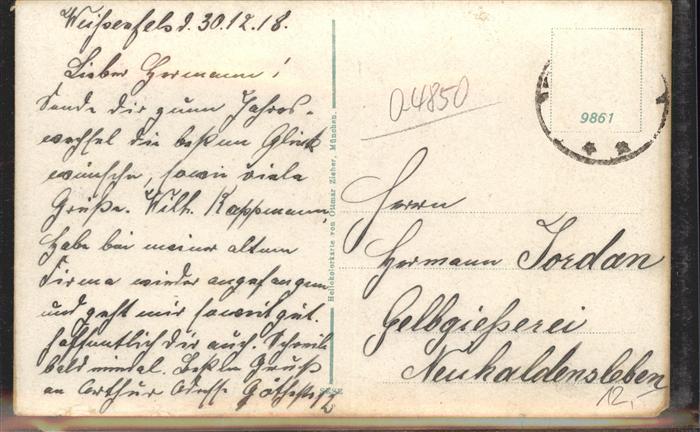 Weißenfels d. 30.12.18.
Lieber Hermann!
Sende dir zum Jahres-
wechsel die besten Glück
wünsche, sowie viele
Grüße. Wilh. Kappmann,
habe bei meiner alten
Firma wieder angefangen
und geht mir soweit gut.
hoffentlich dir auch. Schreib
bald mal. Besten Gruß
an Arthur
Hellokolorkarte von Ottmar Zieher, München.
04850
9861
Herrn
Hermann Jordan
Gelbgießerei
Neuhaldensleben
12,-